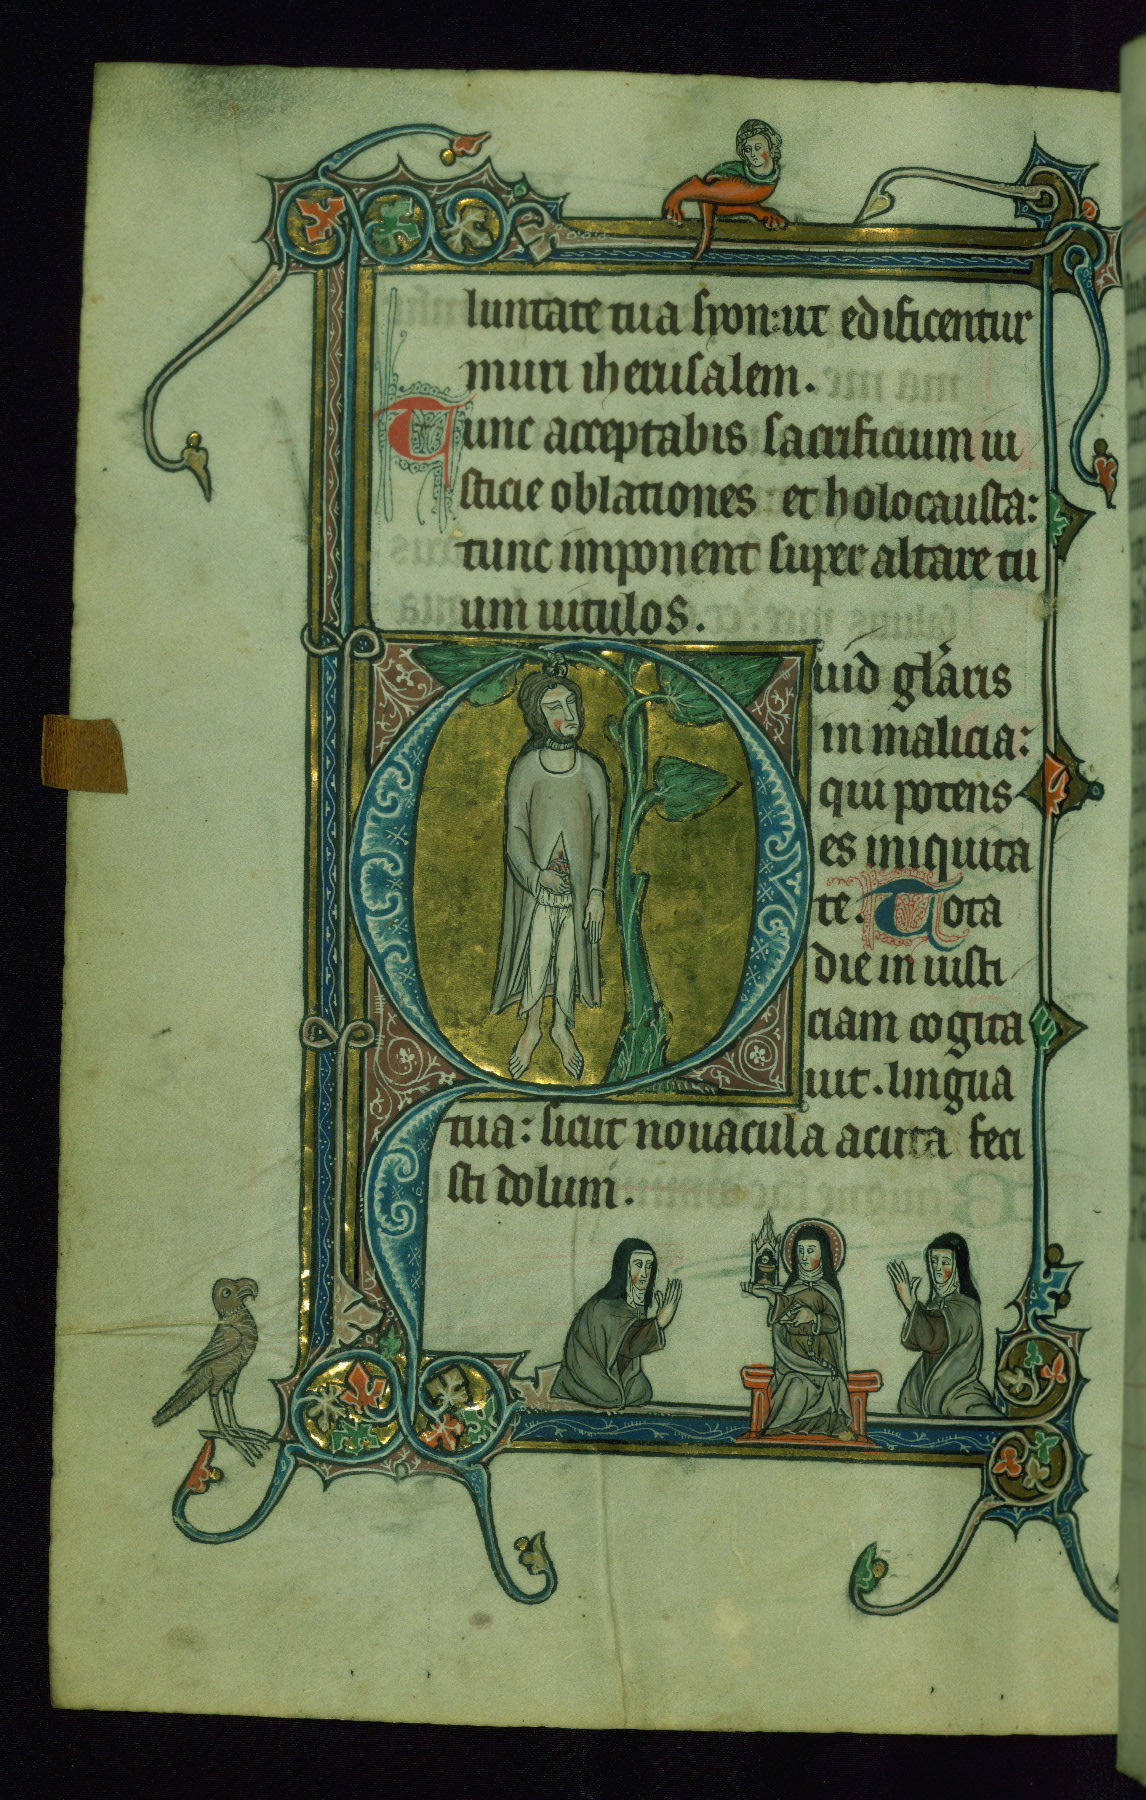 luntate tua syon: ut edificentur
muri iherusalem.
Tunc acceptabis sacrificium iu
sticie oblationes et holocausta:
tunc imponent super altare tu
um uitulos.
Quid gl'aris
in malicia:
qui potens
es iniquita
te. Tota
die in iusti
ciam cogita
uit. lingua
tua: sicut nouacula acuta feci
sti dolum.